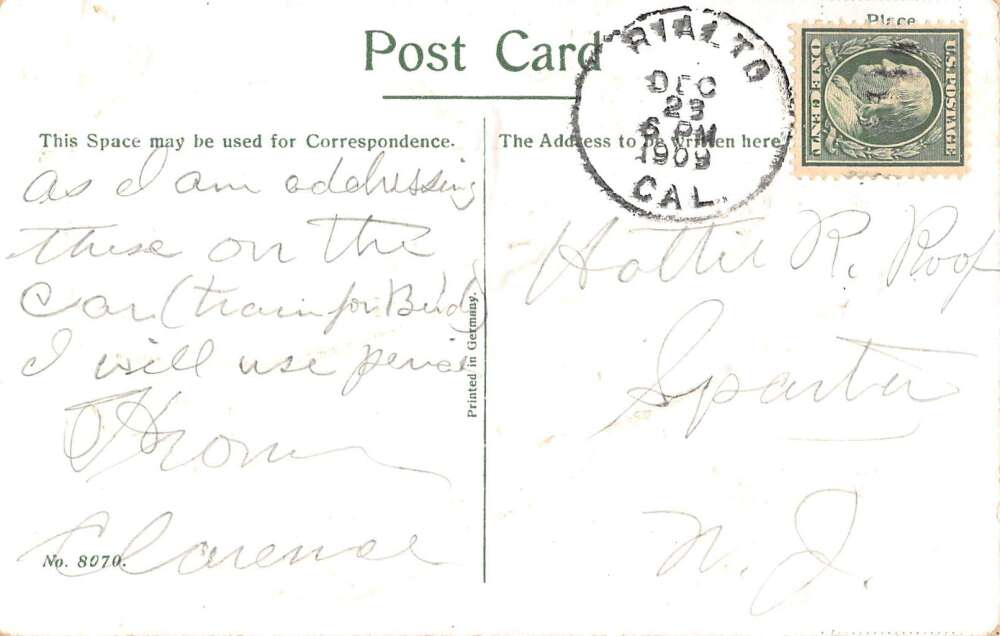 Post Card
This Space may be used for Correspondence.
as I am addressing
these on the
Car (train for Birdy)
I will use pencil
From
Clarence
No. 8070.
Printed in Germany.
RIALTO
DEC
23
6 PM
1909
CAL.
Place
U.S. POSTAGE
ONE CENT
The Address to be written here
Hattie R. Roof
Sparta
N. J.